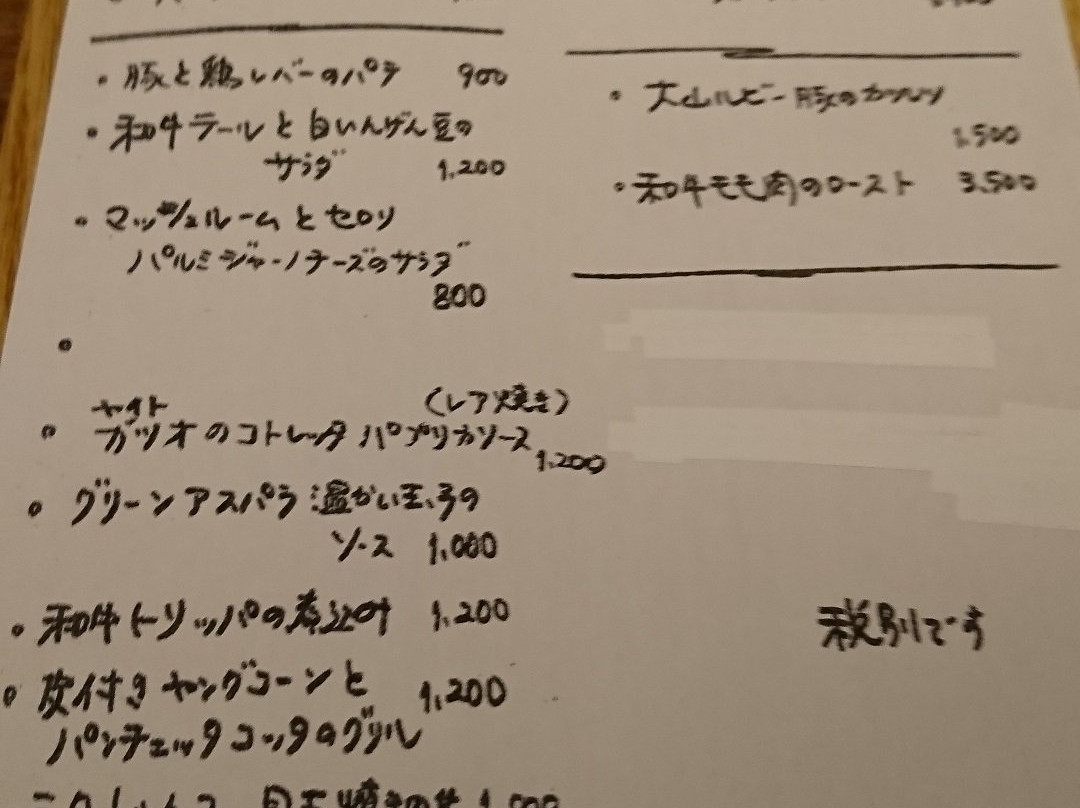 ・豚と鶏レバーのパテ 900
・和牛テールと白いんげん豆の
サラダ 1,200
・マッシュルームとセロリ
パルミジャーノチーズのサラダ
800
・
ヤイト (レア焼き)
・ガツオのコトレッタ パプリカソース
1,200
・グリーンアスパラ 温かい玉子の
ソース 1,000
・和牛トリッパの煮込み 1,200
・皮付きヤングコーンと 1,200
パンチェッタコッタのグリル
1,000
・大山ルビー豚のカツレツ
1,500
・和牛モモ肉のロースト 3,500
税別です